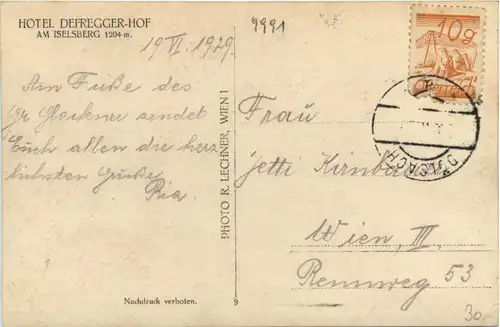 HOTEL DEFREGGER-HOF
AM ISELSBERG 1204 m.
19 VI. 1929.
Am Fuße des
Gr Glockner sendet
Euch allen die herz
lichsten Grüße
Ria
PHOTO R. LECHNER, WIEN I
Nachdruck verboten.
9
9991
10g
DÖLSACH
Frau
jetti
Wien, III.
Rennweg 53
30.-